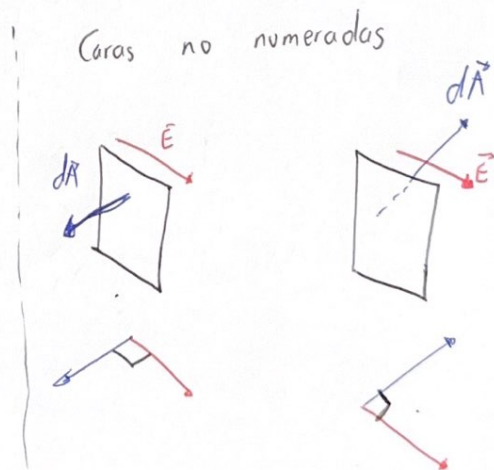 Caras no numeradas
dA⃗
E⃗
dA⃗
E⃗